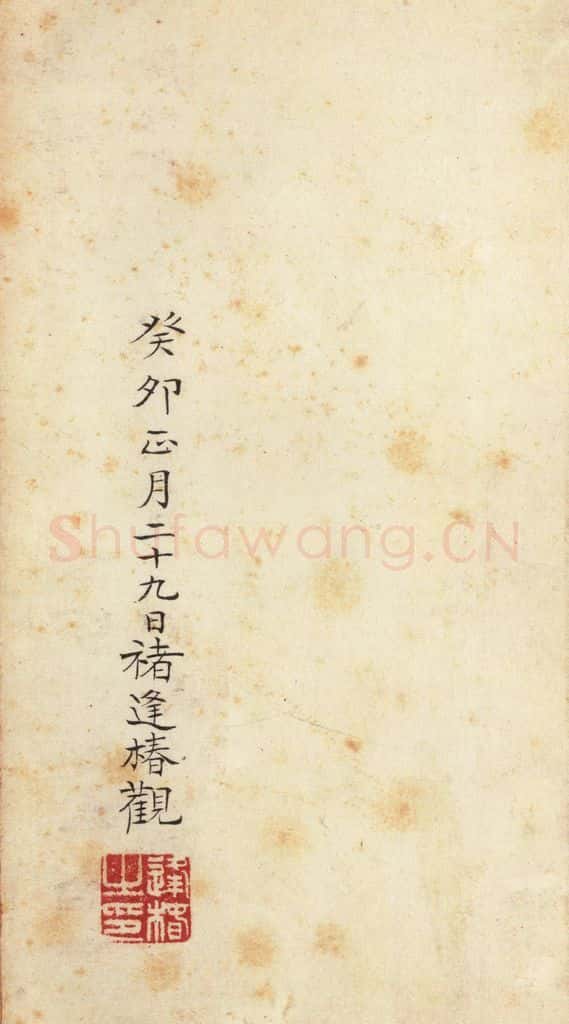 癸卯正月二十九日褚逢椿觀
逢椿之印
Shufawang.CN